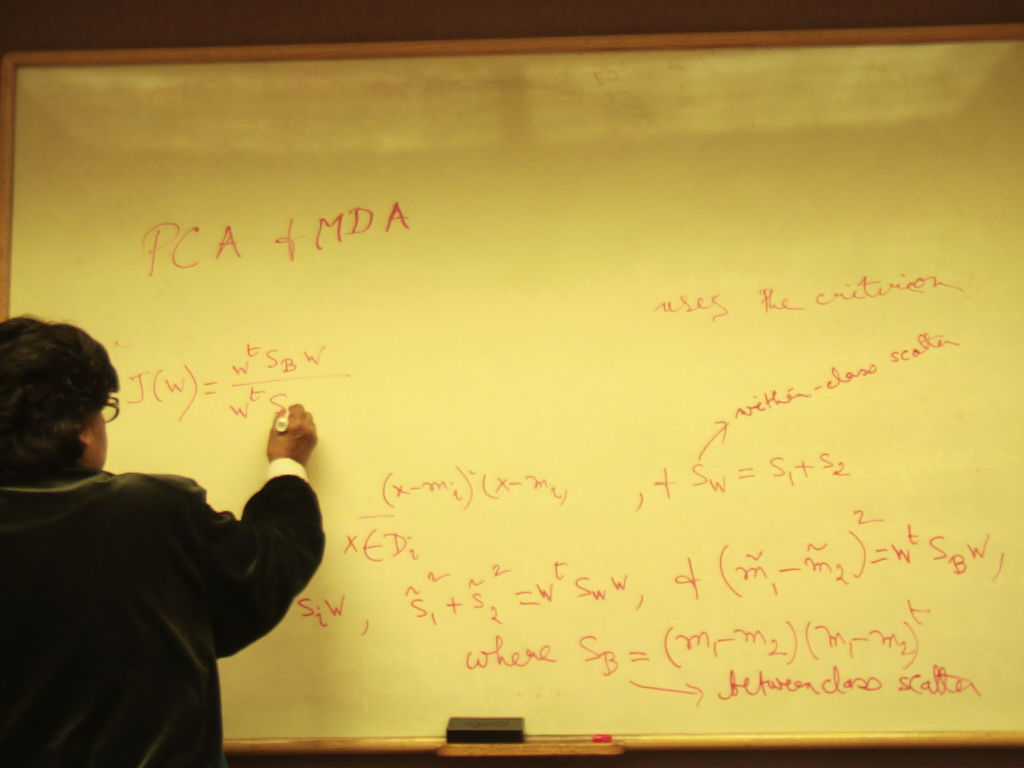 PCA & MDA
uses the criterion
J(w) = w^t S_B w / w^t S
within-class scatter
(x-m_i)(x-m_i, , & S_W = S_1 + S_2
x∈D_i
S_i w, s̃_1^2 + s̃_2^2 = w^t S_W w, & (m̃_1 - m̃_2)^2 = w^t S_B w,
where S_B = (m_1 - m_2)(m_1 - m_2)^t
→ between class scatter